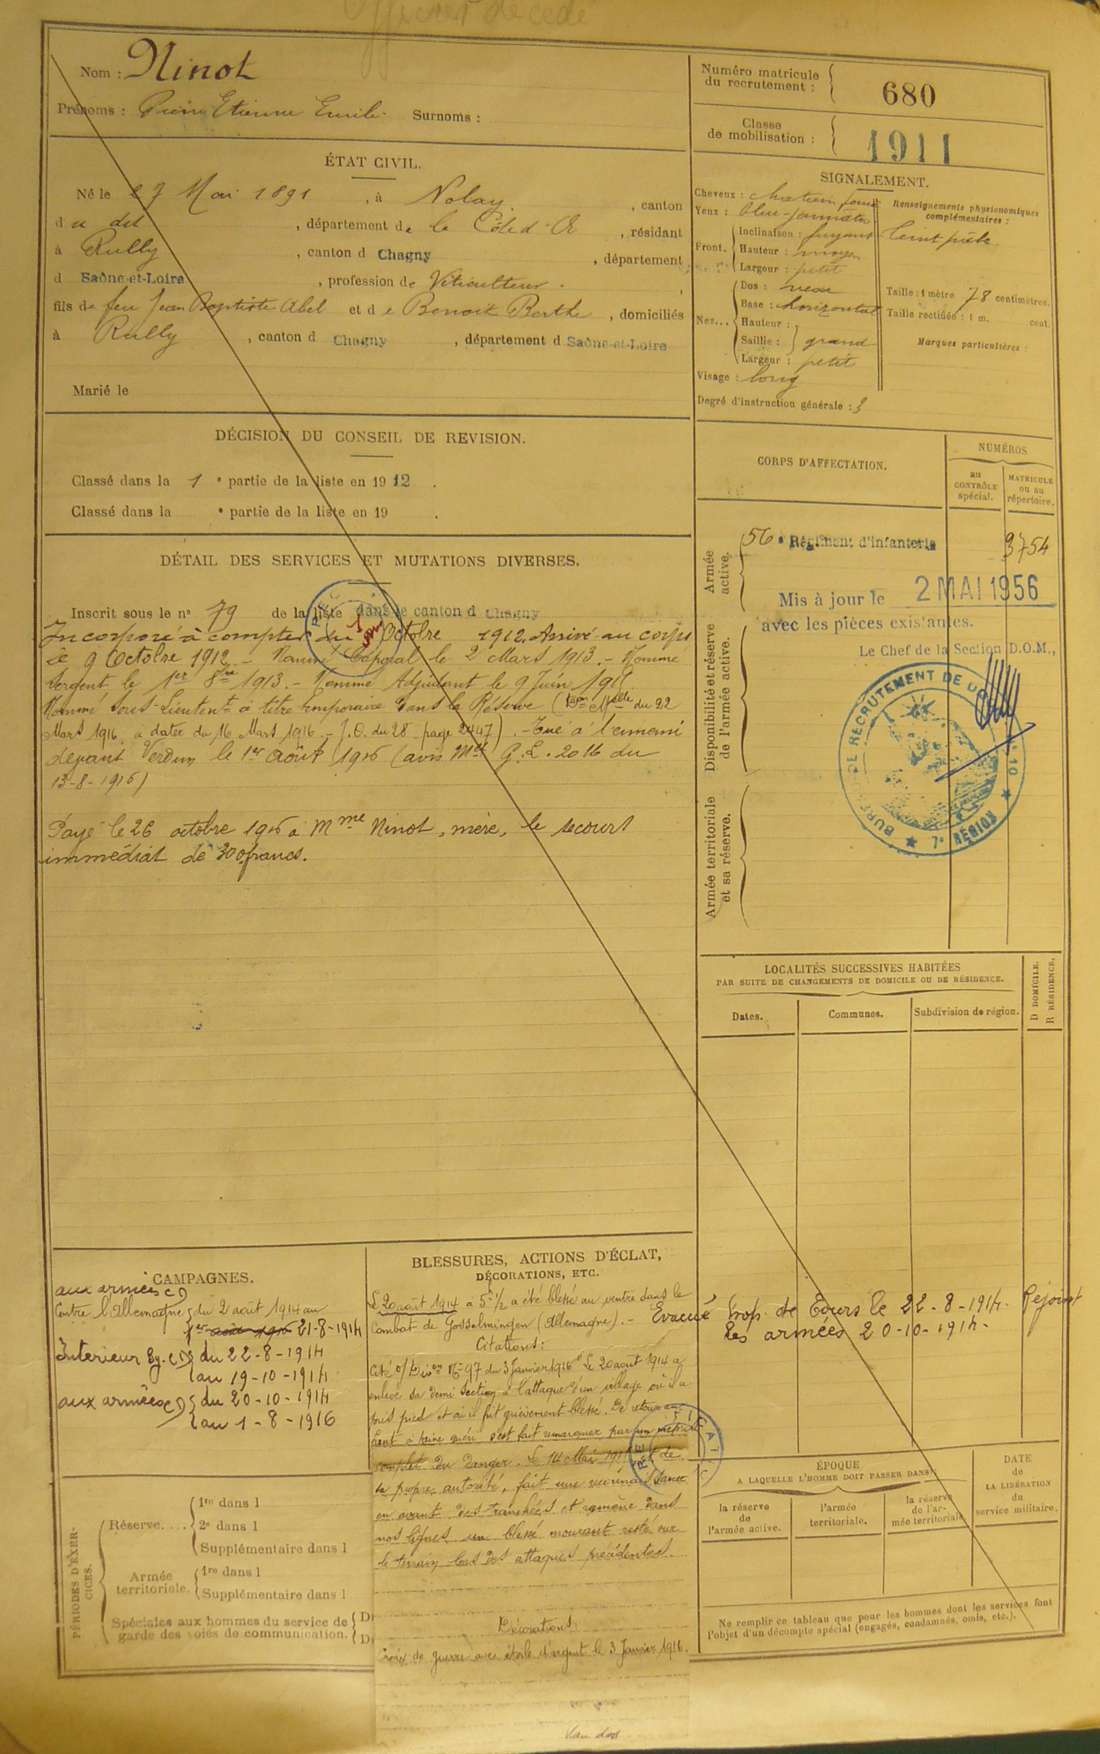 Officier décédé
Nom : Ninot
Prénoms : Pierre Etienne Emile Surnoms :
ÉTAT CIVIL.
Né le 27 Mai 1891, à Nolay, canton
du dit, département de la Côte d'Or, résidant
à Rully, canton d Chagny, département
d Saône-et-Loire, profession de Viticulteur.
fils de feu Jean Baptiste Abel et de Benoit Berthe, domiciliés
à Rully, canton d Chagny, département d Saône-et-Loire
Marié le
DÉCISION DU CONSEIL DE REVISION.
Classé dans la 1e partie de la liste en 1912.
Classé dans la e partie de la liste en 19 .
DÉTAIL DES SERVICES ET MUTATIONS DIVERSES.
Inscrit sous le n° 79 de la liste dans le canton d Chagny
Incorporé à compter du Octobre 1912. Arrivé au corps
le 9 Octobre 1912. - Nommé Caporal le 2 Mars 1913. - Nommé
Sergent le 1er 8bre 1913. - Nommé Adjudant le 9 Juin 1915
Nommé Sous-Lieutent à titre temporaire dans la Réserve (Don Melle du 22
Mars 1916 à dater du 16 Mars 1916 - J.O. du 28 - page 2447). - Tué à l'ennemi
devant Verdun le 1er Août 1916 (avis Mel G.L. 2016 du
13-8-1916)
Payé le 26 octobre 1916 à Mme Ninot, mère, le secours
immédiat de 300 francs.
CAMPAGNES.
aux armées CD
Contre l'Allemagne du 2 août 1914 au
21-8-1914
Intérieur CD du 22-8-1914
au 19-10-1914
aux armées CD du 20-10-1914
au 1-8-1916
PÉRIODES D'EXERCICES.
Réserve.... 1re dans l
2e dans l
Supplémentaire dans l
Armée territoriale. 1re dans l
Supplémentaire dans l
Spéciales aux hommes du service de D
garde des voies de communication. D
BLESSURES, ACTIONS D'ÉCLAT,
DÉCORATIONS, ETC.
Le 20 août 1914 à 5h 1/2 a été blessé au ventre dans le
combat de Gosselmingen (Allemagne). - Evacué hop. de Tours le 22-8-1914. Rejoint
les armées 20-10-1914.
Citations :
Cité o/ Dion No 97 du 3 Janvier 1916 "Le 20 août 1914 a
enlevé sa demi section à l'attaque d'un village où il a
pris pied et où il fut grièvement blessé. De retour au
front à peine guéri s'est fait remarquer par son mépris
complet du danger. Le 14 Mai 1915 et de
sa propre autorité, fait une reconnaissance
en avant des tranchées et ramène dans
nos lignes un blessé mourant resté sur
le terrain lors des attaques précédentes.
Décorations
Croix de guerre avec étoile d'argent le 3 Janvier 1916.
Numéro matricule
du recrutement : 680
Classe
de mobilisation : 1911
SIGNALEMENT.
Cheveux : chatain foncé
Yeux :
Front. Inclinaison : fuyant
Hauteur : moyen
Largeur : petit
Nez... Dos :
Base : horizontal
Hauteur :
Saillie : grand
Largeur : petit
Visage : long
Degré d'instruction générale : 3
Renseignements physionomiques
complémentaires :
Teint
Taille : 1 mètre 78 centimètres.
Taille rectifiée : 1 m. cent.
Marques particulières :
CORPS D'AFFECTATION.
NUMÉROS
au
CONTRÔLE
spécial.
MATRICULE
ou au
répertoire.
Armée
active.
56e Régiment d'infanterie 3754
Mis à jour le 2 MAI 1956
avec les pièces existantes.
Le Chef de la Section D.O.M.,
BUREAU DE RECRUTEMENT DE
7e RÉGION
Disponibilité et réserve
de l'armée active.
Armée territoriale
et sa réserve.
LOCALITÉS SUCCESSIVES HABITÉES
PAR SUITE DE CHANGEMENTS DE DOMICILE OU DE RÉSIDENCE.
Dates.
Communes.
Subdivision de région.
D DOMICILE.
R RÉSIDENCE.
ÉPOQUE
A LAQUELLE L'HOMME DOIT PASSER DANS
la réserve
de
l'armée active.
l'armée
territoriale.
la réserve
de l'ar-
mée territoriale
DATE
de
LA LIBÉRATION
du
service militaire.
Ne remplir ce tableau que pour les hommes dont les services font
l'objet d'un décompte spécial (engagés, condamnés, omis, etc.).